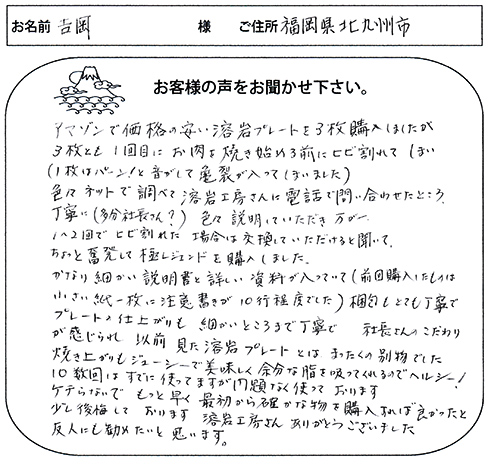 お名前 吉岡 様 ご住所 福岡県北九州市
お客様の声をお聞かせ下さい。
アマゾンで価格の安い溶岩プレートを3枚購入しましたが
3枚とも1回目にお肉を焼き始める前にヒビ割れてしまい
(1枚はパーン!と音がして亀裂が入ってしまいました)
色々ネットで調べて溶岩工房さんに電話で問い合わせたところ、
丁寧に(多分社長さん?)色々説明していただき万が一
1〜2回でヒビ割れた場合は交換していただけると聞いて、
ちょっと奮発して極レジェンドを購入しました。
かなり細かい説明書と詳しい資料が入っていて(前回購入したものは
小さい紙一枚に注意書きが10行程度でした)梱包もとても丁寧で
プレートの仕上がりも細かいところまで丁寧で 社長さんのこだわり
が感じられ 以前見た溶岩プレートとはまったくの別物でした
焼き上がりもジューシーで美味しく余分な脂を吸ってくれるのでヘルシー!
10数回はすでに使ってますが問題なく使っております
ケチらないでもっと早く最初から確かな物を購入すれば良かったと
少し後悔しております 溶岩工房さんありがとうございました
友人にも勧めたいと思います。